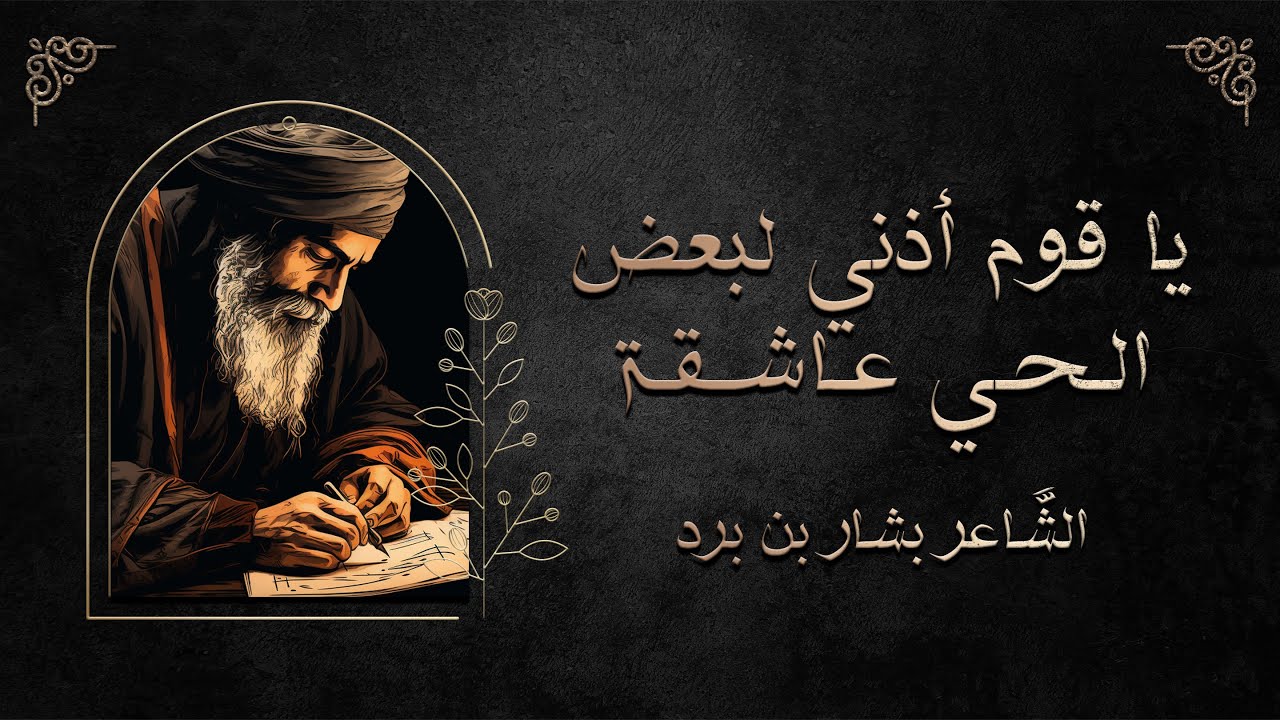 يا قوم أذني لبعض
الحي عاشقة
الشَّاعر بشار بن برد